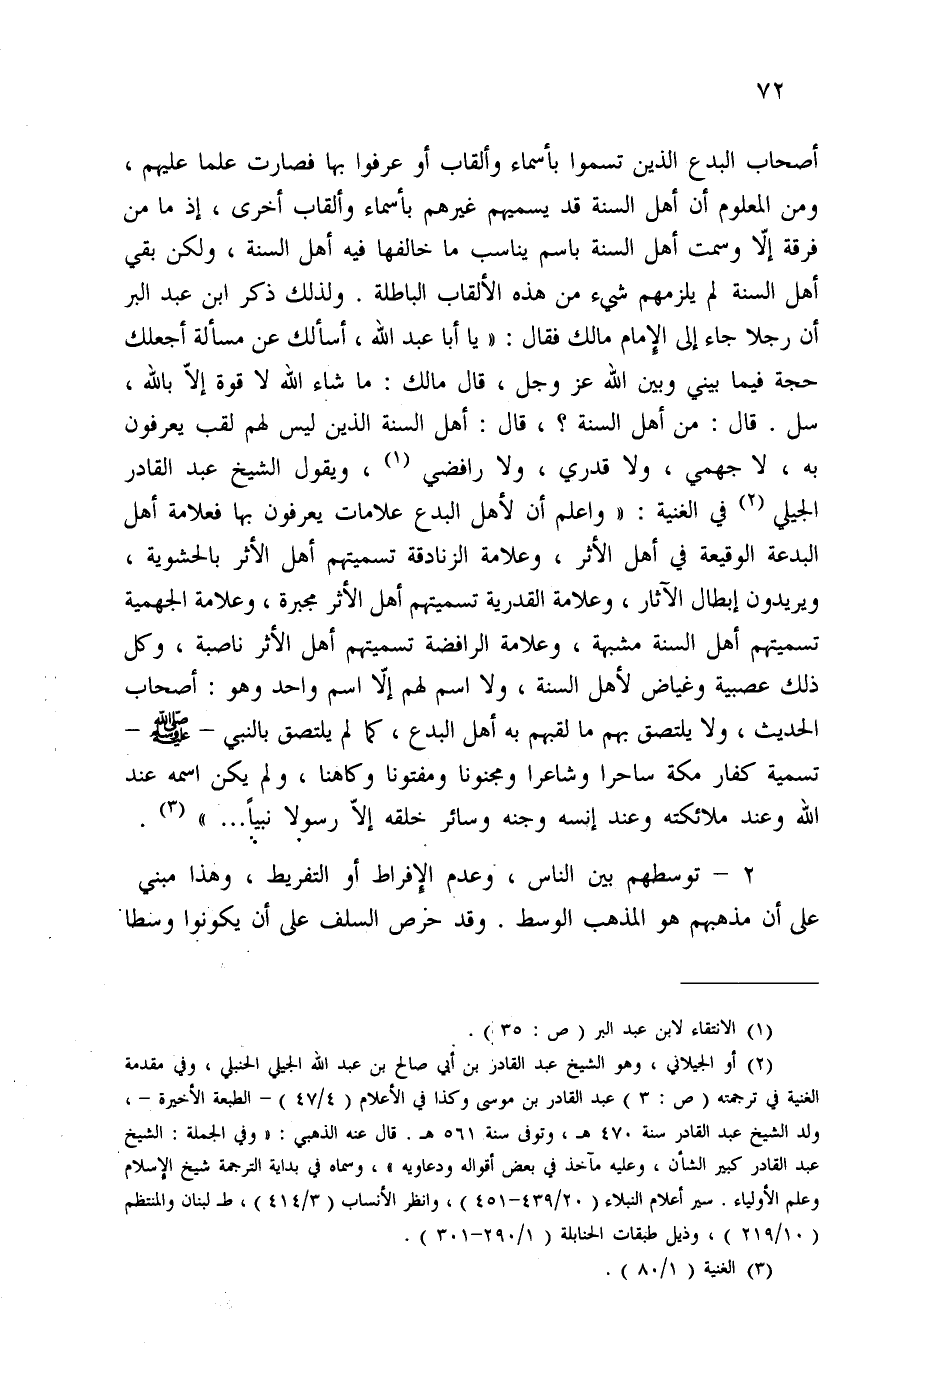 ٧٢
أصحاب البدع الذين تسموا بأسماء وألقاب أو عرفوا بها فصارت علما عليهم ،
ومن المعلوم أن أهل السنة قد يسميهم غيرهم بأسماء وألقاب أخرى ، إذ ما من
فرقة إلّا وسمت أهل السنة باسم يناسب ما خالفها فيه أهل السنة ، ولكن بقي
أهل السنة لم يلزمهم شيء من هذه الألقاب الباطلة . ولذلك ذكر ابن عبد البر
أن رجلا جاء إلى الإمام مالك فقال : « يا أبا عبد الله ، أسألك عن مسألة أجعلك
حجة فيما بيني وبين الله عز وجل ، قال مالك : ما شاء الله لا قوة إلاّ بالله ،
سل . قال : من أهل السنة ؟ ، قال : أهل السنة الذين ليس لهم لقب يعرفون
به ، لا جهمي ، ولا قدري ، ولا رافضي (١) ، ويقول الشيخ عبد القادر
الجيلي (٢) في الغنية : « واعلم أن لأهل البدع علامات يعرفون بها فعلامة أهل
البدعة الوقيعة في أهل الأثر ، وعلامة الزنادقة تسميتهم أهل الأثر بالحشوية ،
ويريدون إبطال الآثار ، وعلامة القدرية تسميتهم أهل الأثر مجبرة ، وعلامة الجهمية
تسميتهم أهل السنة مشبهة ، وعلامة الرافضة تسميتهم أهل الأثر ناصبة ، وكل
ذلك عصبية وغياض لأهل السنة ، ولا اسم لهم إلّا اسم واحد وهو : أصحاب
الحديث ، ولا يلتصق بهم ما لقبهم به أهل البدع ، كما لم يلتصق بالنبي – ﷺ –
تسمية كفار مكة ساحرا وشاعرا ومجنونا ومفتونا وكاهنا ، ولم يكن اسمه عند
الله وعند ملائكته وعند إنسه وجنه وسائر خلقه إلاّ رسولا نبياً... » (٣) .
٢ – توسطهم بين الناس ، وعدم الإفراط أو التفريط ، وهذا مبني
على أن مذهبهم هو المذهب الوسط . وقد حرص السلف على أن يكونوا وسطا
(١) الانتقاء لابن عبد البر ( ص : ٣٥ ) .
(٢) أو الجيلاني ، وهو الشيخ عبد القادر بن أبي صالح بن عبد الله الجيلي الحنبلي ، وفي مقدمة
الغنية في ترجمته ( ص : ٣ ) عبد القادر بن موسى وكذا في الأعلام ( ٤٧/٤ ) – الطبعة الأخيرة – ،
ولد الشيخ عبد القادر سنة ٤٧٠ هـ ، وتوفى سنة ٥٦١ هـ . قال عنه الذهبي : « وفي الجملة : الشيخ
عبد القادر كبير الشأن ، وعليه مآخذ في بعض أقواله ودعاويه » ، وسماه في بداية الترجمة شيخ الإسلام
وعلم الأولياء . سير أعلام النبلاء ( ٤٣٩/٢٠–٤٥١ ) ، وانظر الأنساب ( ٤١٤/٣ ) ، طـ لبنان والمنتظم
( ٢١٩/١٠ ) ، وذيل طبقات الحنابلة ( ٢٩٠/١–٣٠١ ) .
(٣) الغنية ( ٨٠/١ ) .